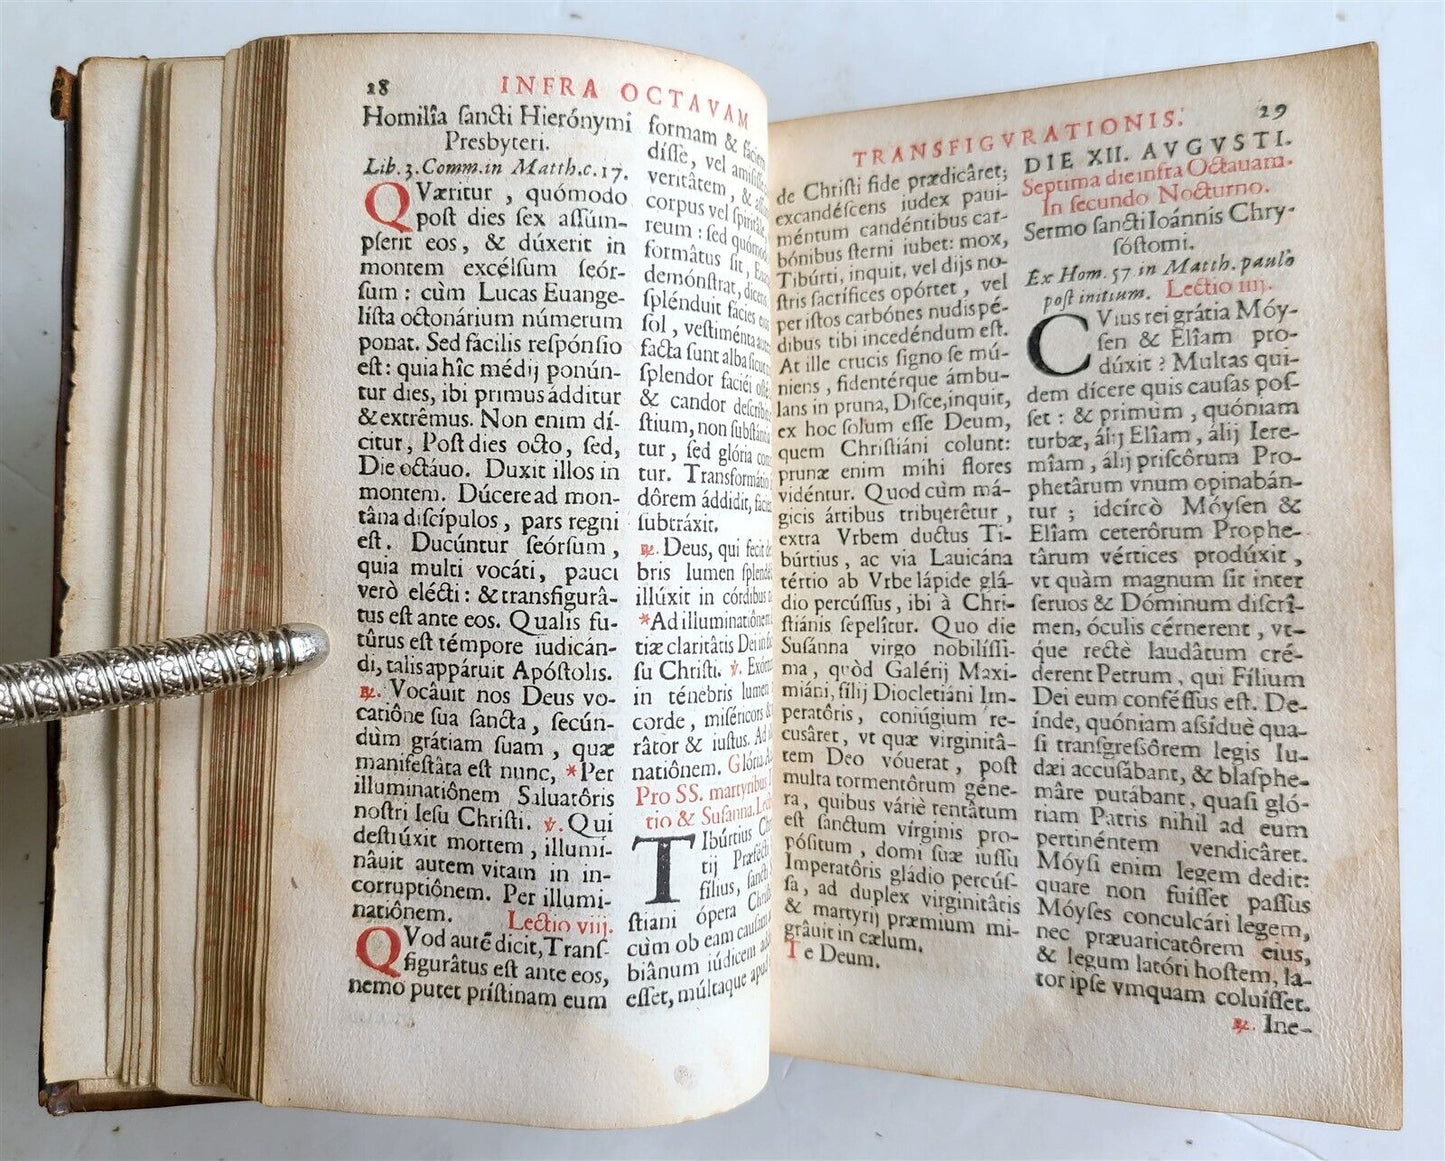 18 INFRA OCTAVAM
Homilîa ſancti Hierónymi
Presbyteri.
Lib. 3. Comm. in Matth. c. 17.
QVæritur , quómodo
poſt dies ſex aſſúm-
pſerit eos, & dúxerit in
montem excélſum ſeór-
ſum : cùm Lucas Euange-
liſta octonárium númerum
ponat. Sed facilis reſpónſio
eſt : quia hîc médij ponún-
tur dies, ibi primus ádditur
& extrêmus. Non enim dí-
citur, Poſt dies octo, ſed,
Die octáuo. Duxit illos in
montem. Dúcere ad mon-
tâna diſcípulos , pars regni
eſt. Ducúntur ſeórſum ,
quia multi vocáti, pauci
verò elécti : & transfigurâ-
tus eſt ante eos. Qualis fu-
tûrus eſt témpore iudicán-
di, talis appáruit Apóſtolis.
℟. Vocáuit nos Deus vo-
catiône ſua ſancta, ſecún-
dùm grátiam ſuam , quæ
manifeſtâta eſt nunc, *Per
illuminatiônem Saluatôris
noſtri Ieſu Chriſti. ℣. Qui
deſtrúxit mortem , illumi-
nâuit autem vitam in in-
corruptiônem. Per illumi-
natiônem. Lectio viij.
QVod autē dicit, Tranſ-
figurâtus eſt ante eos,
nemo putet príſtinam eum
formam & fáciem
diſſe, vel amiſiſſe
veritâtem , &
corpus vel ſpiritâle,
reum : ſed quómodo
formâtus ſit,
demónſtrat, dicens,
ſplénduit fácies eius
ſol , veſtiménta autem
facta ſunt alba ſicut
ſplendor faciéi
& candor deſcrib
ſtium, non ſubſtántia
tur , ſed glória com
tur. Transformátio
dôrem áddidit, fáciem
ſubtráxit.
℟. Deus, qui fecit de
bris lumen ſplend
illúxit in córdibus
*Ad illuminatiônem
tiæ claritâtis Dei in
ſu Chriſti. ℣. Exórtum
in ténebris lumen
corde , miſéricors &
râtor & iuſtus. Ad
natiônem. Glória
Pro SS. martyribus
tio & Suſanna. Lectio
TIbúrtius
tij Præfécti
fílius, ſancti
ſtiáni ópera
cùm ob eam cauſam
biânum iúdicem
eſſet, múltaque apud
TRANSFIGVRATIONIS. 29
de Chriſti fide prædicâret;
excandéſcens iudex paui-
méntum candéntibus car-
bónibus ſterni iubet: mox,
Tibúrti, inquit, vel dijs no-
ſtris ſacrifices opórtet , vel
per iſtos carbónes nudis pé-
dibus tibi incedéndum eſt.
At ille crucis ſigno ſe mú-
niens , fidentérque ámbu-
lans in pruna, Diſce, inquit,
ex hoc ſolum eſſe Deum,
quem Chriſtiáni colunt:
prunæ enim mihi flores
vidéntur. Quod cùm má-
gicis ártibus tribuerêtur ,
extra Vrbem ductus Ti-
búrtius, ac via Lauicána
tértio ab Vrbe lápide glá-
dio percúſſus , ibi à Chri-
ſtiánis ſepelîtur. Quo die
Suſánna virgo nobilíſſi-
ma , quòd Galérij Maxi-
miáni, fílij Diocletiáni Im-
peratôris , coniúgium re-
cusâret, vt quæ virginitâ-
tem Deo vóuerat , poſt
multa tormentôrum géne-
ra, quibus várie tentâtum
eſt ſanctum vírginis pro-
póſitum , domi ſuæ iuſſu
Imperatôris gládio percúſ-
ſa, ad duplex virginitâtis
& martyrij præmium mi-
grâuit in cælum.
Te Deum.
DIE XII. AVGVSTI.
Septima die infra Octauam.
In ſecundo Nocturno.
Sermo ſancti Ioánnis Chry-
ſóſtomi.
Ex Hom. 57 in Matth. paulò
poſt initium. Lectio iiij.
CVius rei grátia Móy-
ſen & Elîam pro-
dúxit ? Multas qui-
dem dícere quis cauſas poſ-
ſet : & primùm , quóniam
turbæ, álij Elîam , álij Iere-
mîam , álij priſcôrum Pro-
phetârum vnum opinabán-
tur ; idcircò Móyſen &
Elîam ceterôrum Prophe-
târum vértices prodúxit ,
vt quàm magnum ſit inter
ſeruos & Dóminum diſcrî-
men, óculis cérnerent , vt-
que rectè laudâtum cré-
derent Petrum , qui Fílium
Dei eum conféſſus eſt. De-
índe, quóniam aſſíduè qua-
ſi transgreſſôrem legis Iu-
dæi accuſábant, & blaſphe-
mâre putábant, quaſi gló-
riam Patris nihil ad eum
pertinéntem vendicâret.
Móyſi enim legem dedit:
quare non fuiſſet paſſus
Móyſes conculcári legem,
nec præuaricatôrem eius,
& legum latóri hoſtem, la-
tor ipſe vmquam coluíſſet.
℟. Ine-